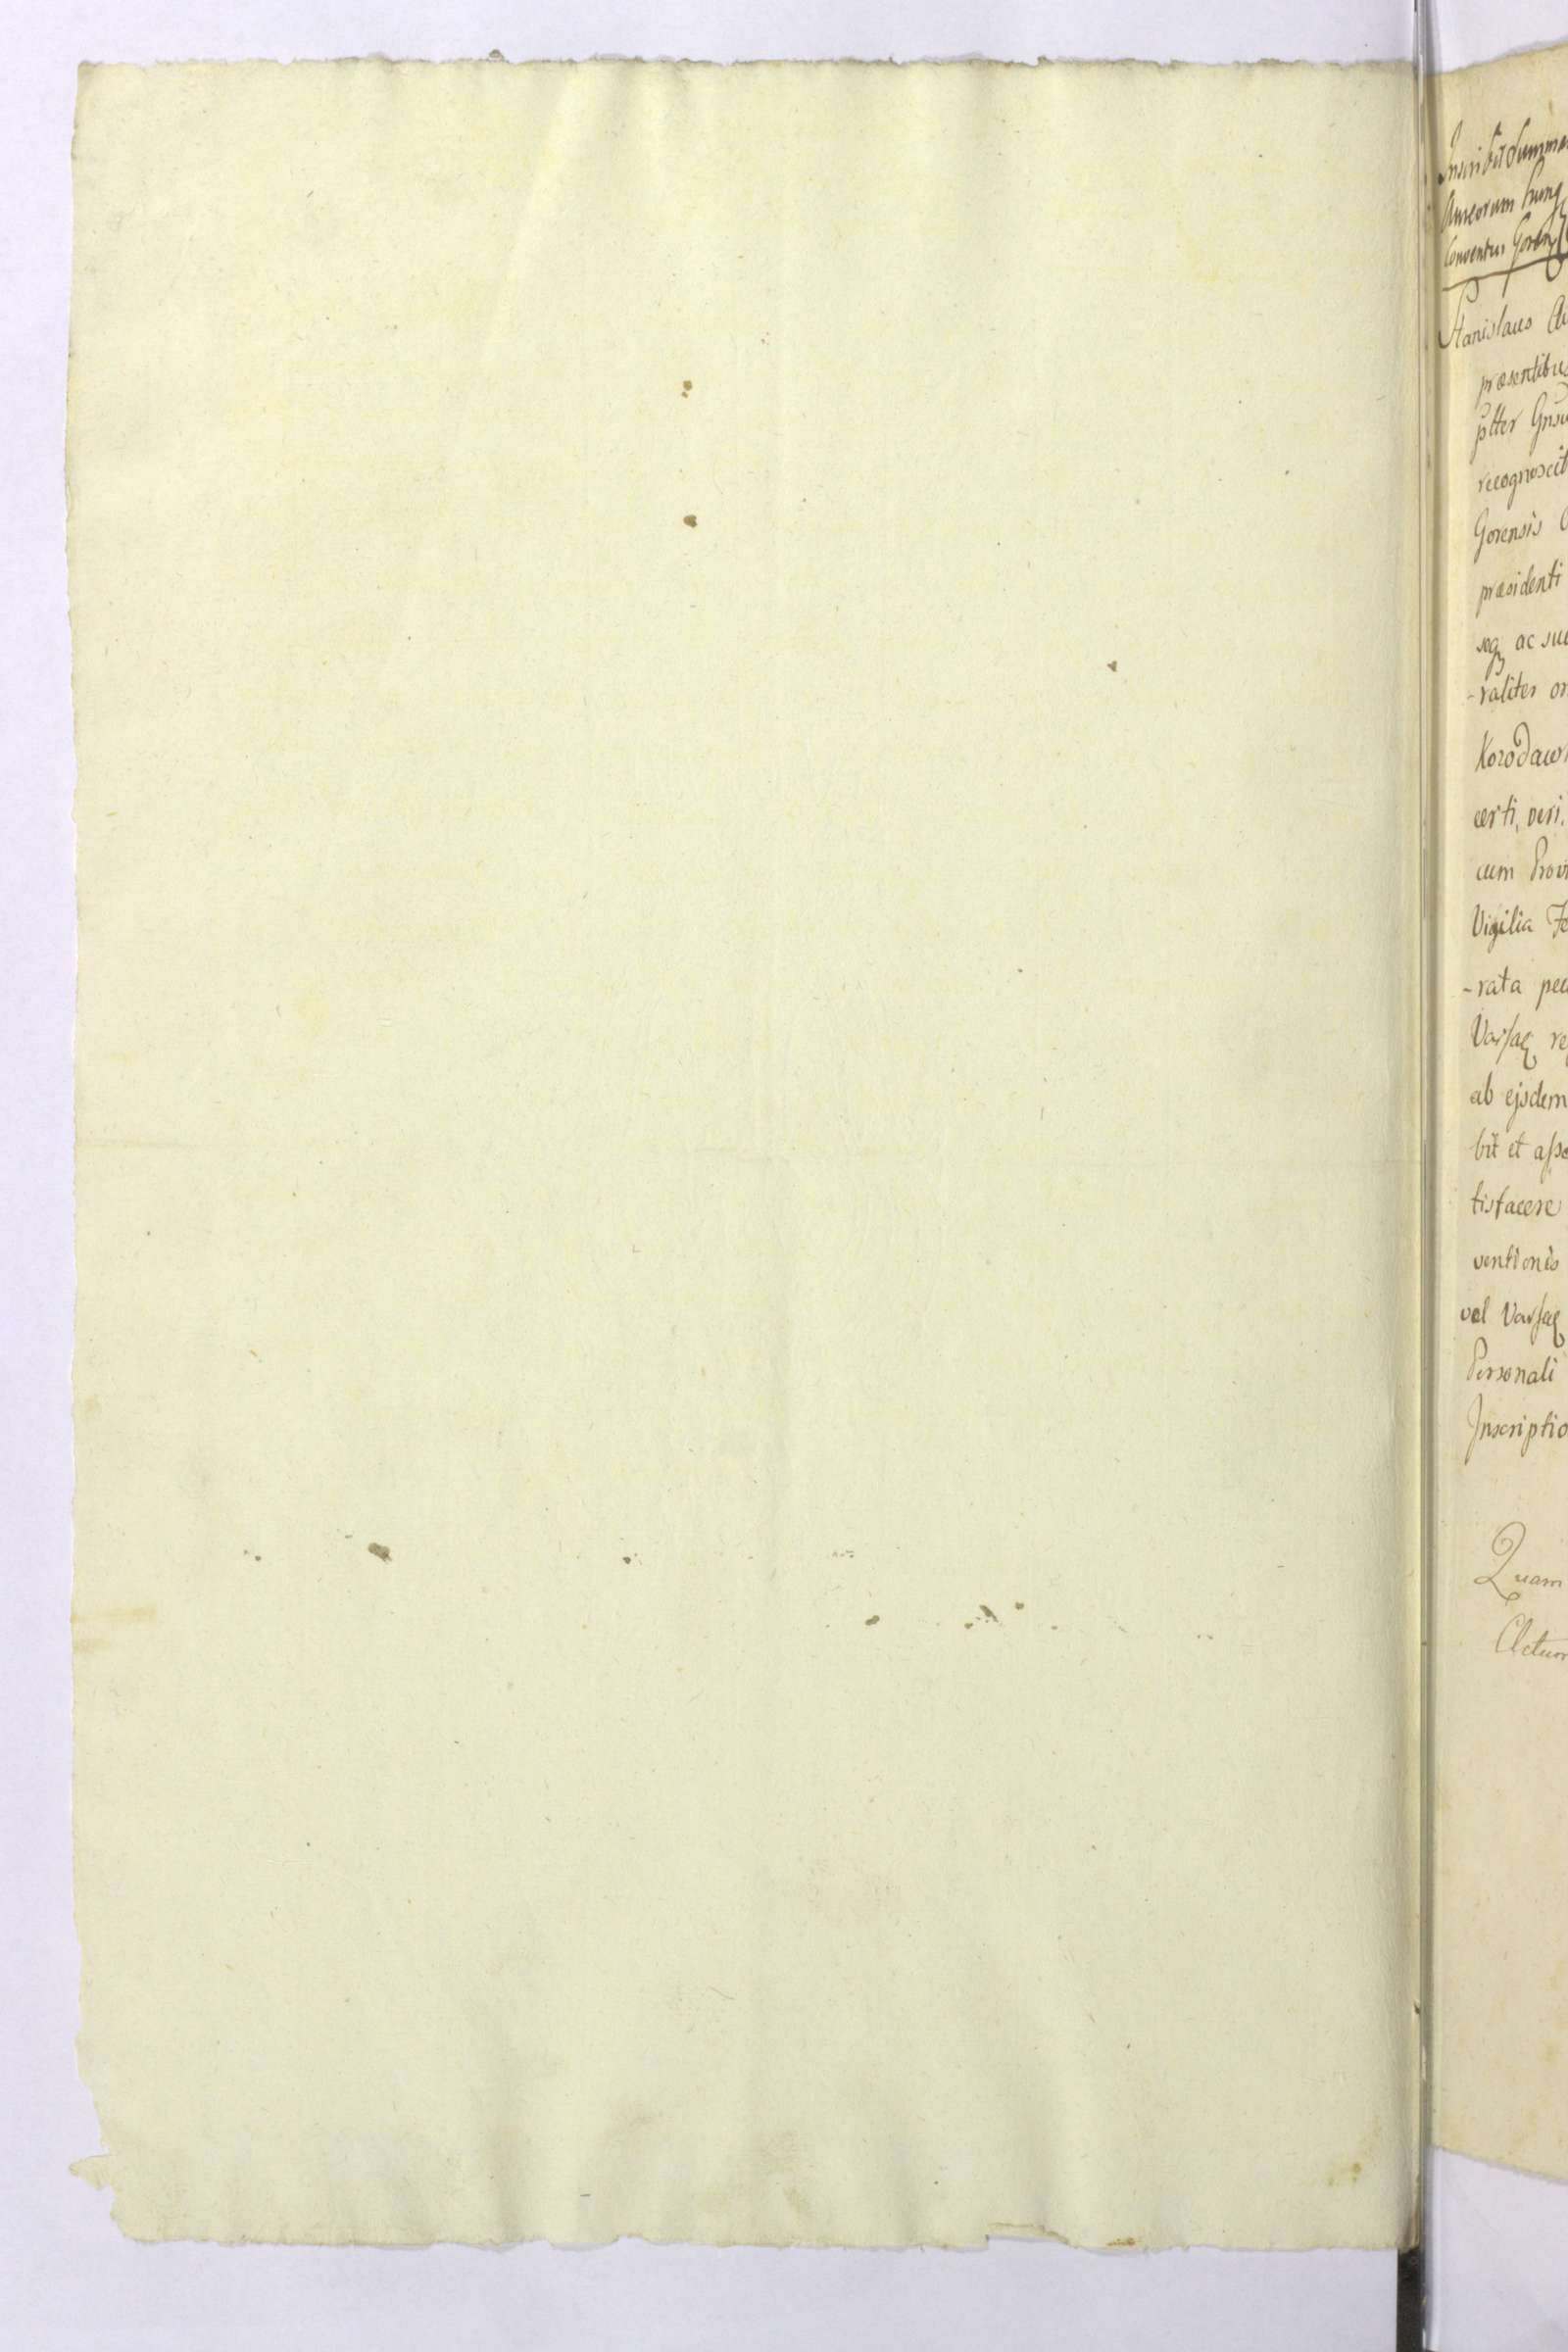 Inscribit Summa
Aureorum hung
Conventus Goren
Stanislaus
præsentibus
ptter
recognoscit
Gorensis
præsidenti
soq ac suc
-raliter om
Korodaw
certi, veri,
cum Prov
Vigilia Fe
-rata pec
Varsaq re
ab ejsdem
bit et asse
tisfacere
ventionis
vel Varsaq
Personali
Inscriptio
Quam
Actum